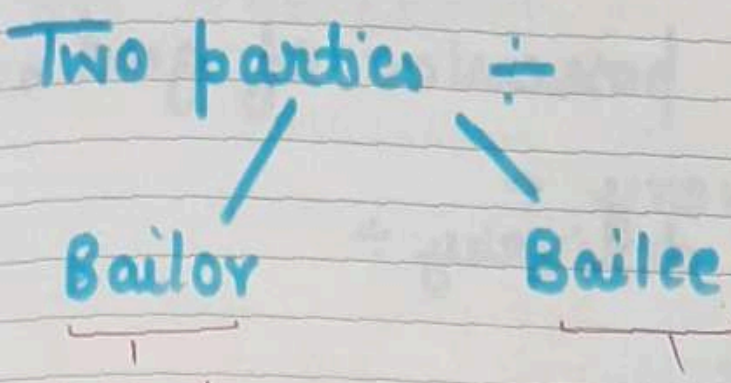 Two parties ÷
Bailor Bailee